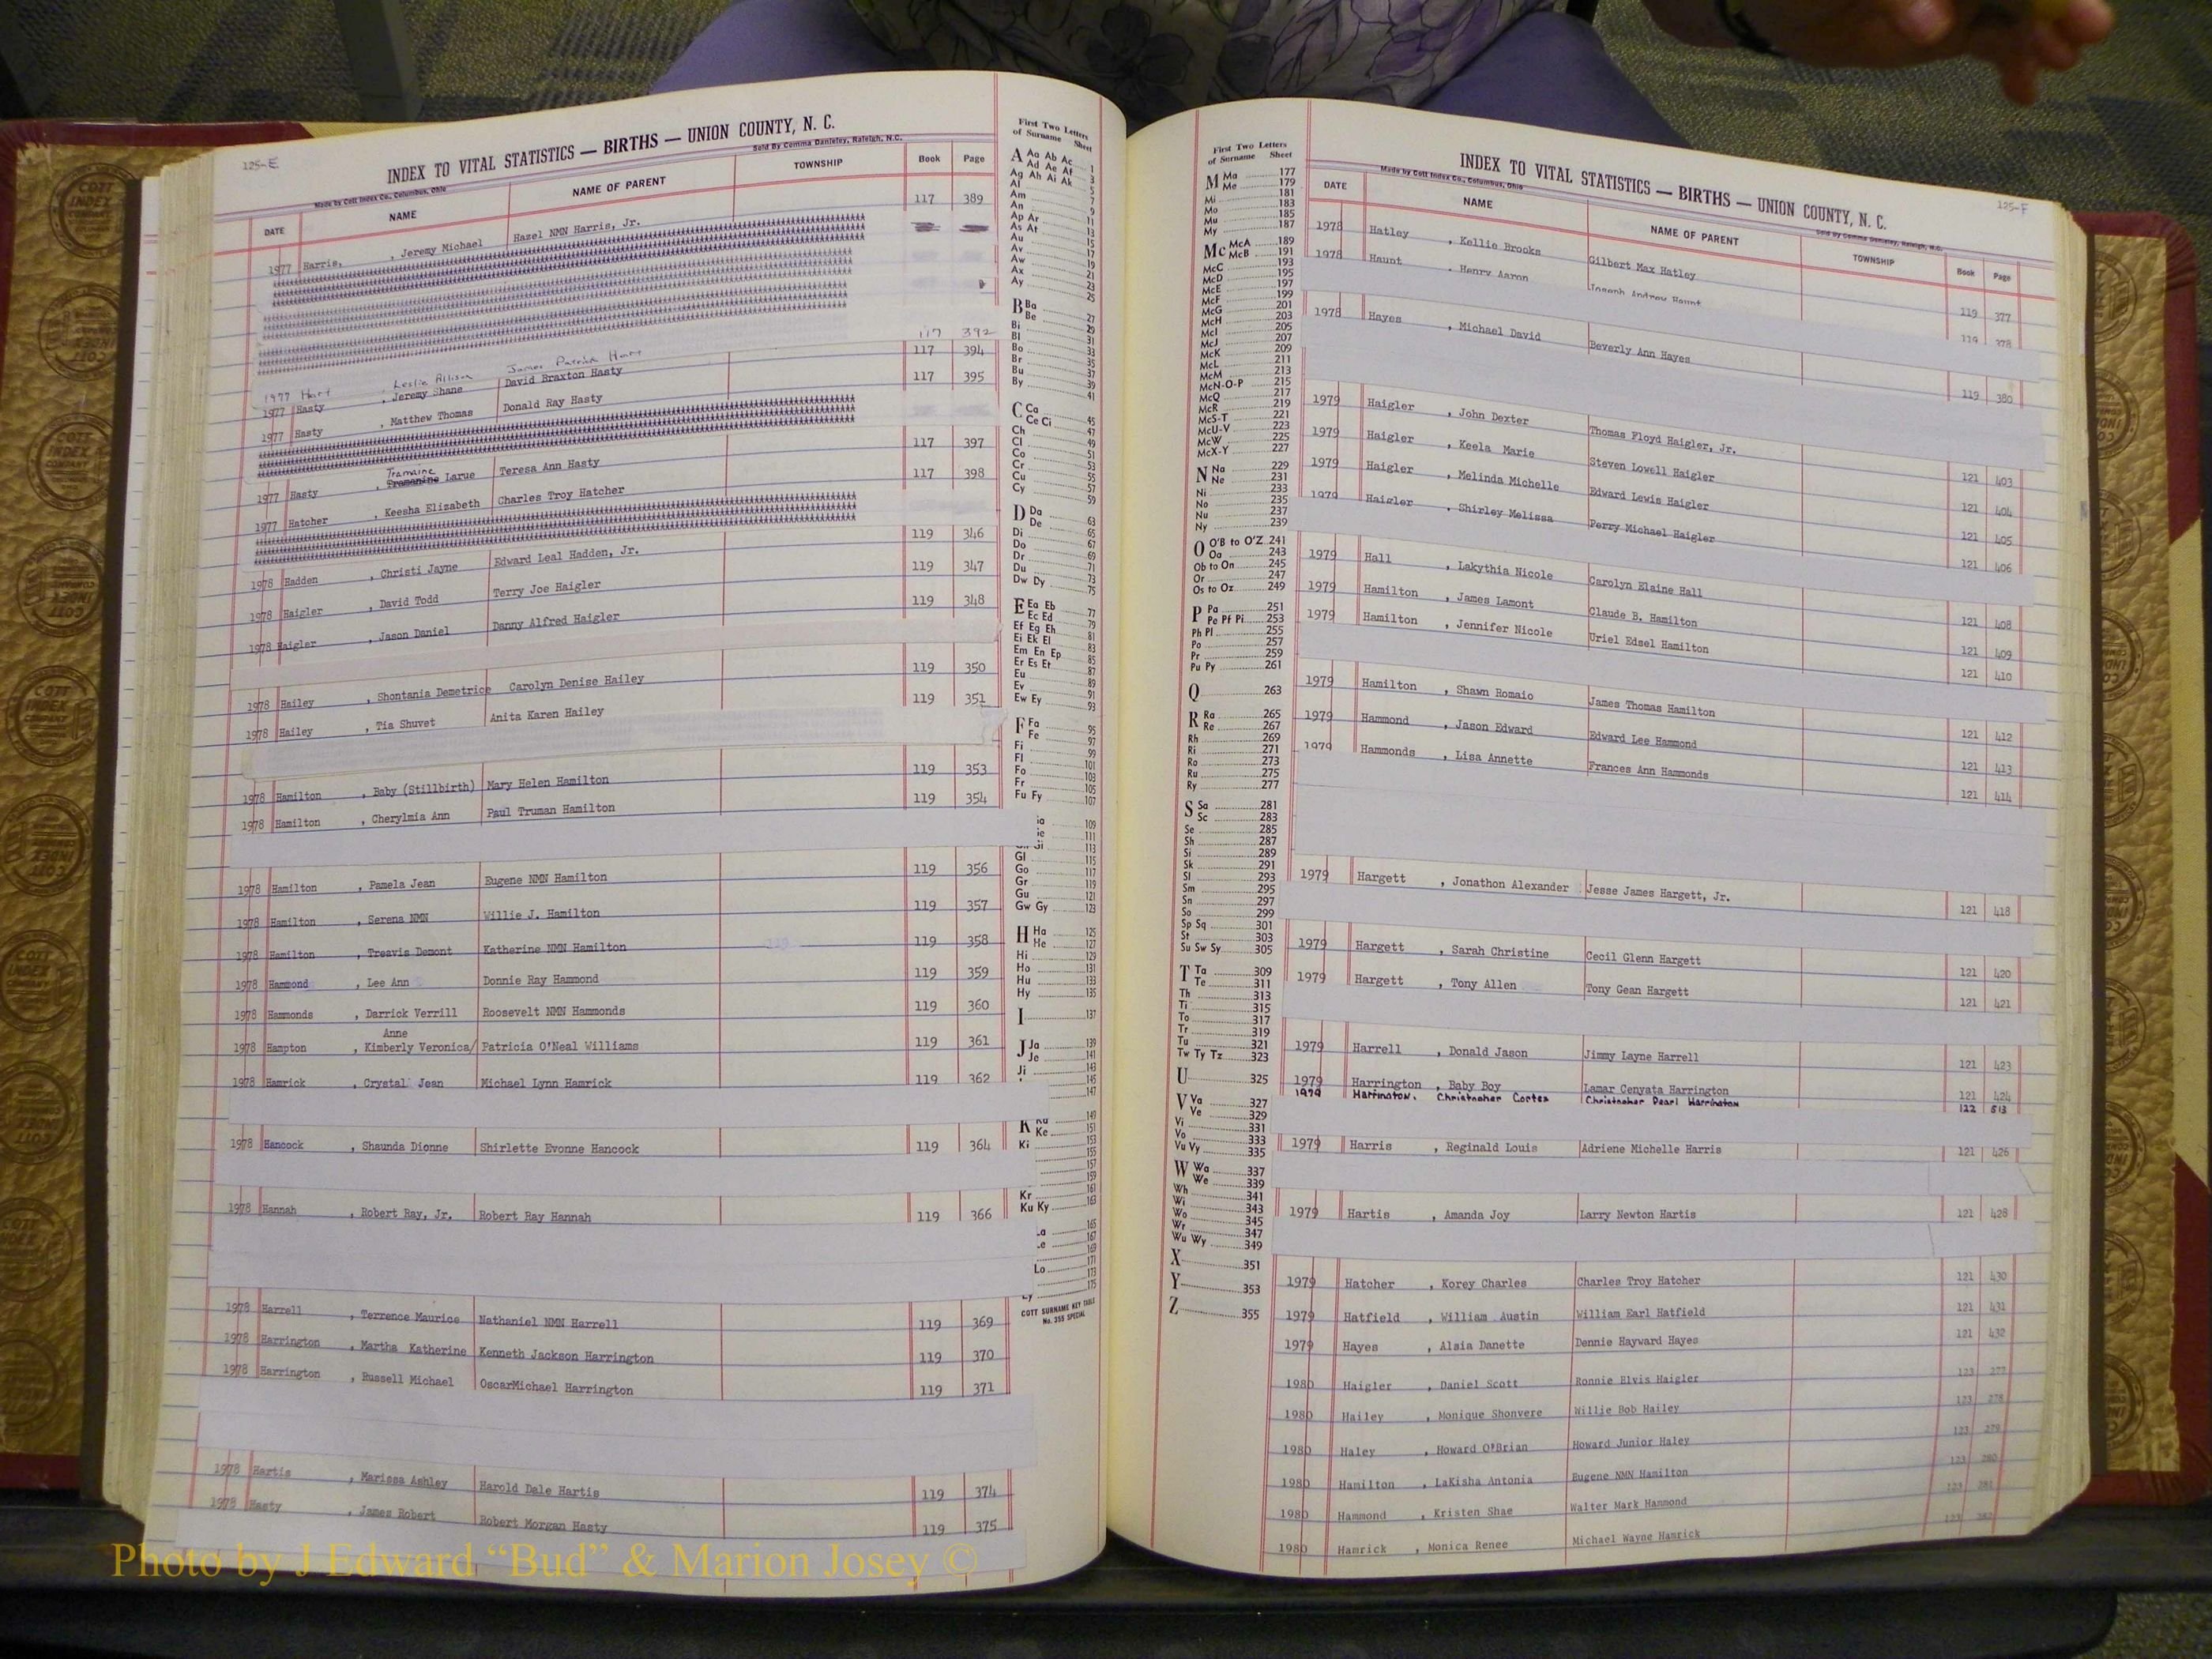 125-E
INDEX TO VITAL STATISTICS — BIRTHS — UNION COUNTY, N. C.
Made by Cott Index Co., Columbus, Ohio Sold By Comma Danieley, Raleigh, N.C.
DATE NAME NAME OF PARENT TOWNSHIP Book Page
1977 Harris, , Jeremy Michael Hazel NMN Harris, Jr. 117 389
1977 Hart , Leslie Allison James Patrick 117 392
1977 Hasty , Jeremy Shane David Braxton Hasty 117 394
1977 Hasty , Matthew Thomas Donald Ray Hasty 117 395
Tramaine
1977 Hasty , Larue Teresa Ann Hasty 117 397
1977 Hatcher , Keesha Elizabeth Charles Troy Hatcher 117 398
1978 Hadden , Christi Jayne Edward Leal Hadden, Jr. 119 346
1978 Haigler , David Todd Terry Joe Haigler 119 347
1978 Haigler , Jason Daniel Danny Alfred Haigler 119 348
1978 Hailey , Shontania Demetrice Carolyn Denise Hailey 119 350
1978 Hailey , Tia Shuvet Anita Karen Hailey 119 351
1978 Hamilton , Baby (Stillbirth) Mary Helen Hamilton 119 353
1978 Hamilton , Cherylmia Ann Paul Truman Hamilton 119 354
1978 Hamilton , Pamela Jean Eugene NMN Hamilton 119 356
1978 Hamilton , Serena NMN Willie J. Hamilton 119 357
1978 Hamilton , Treavis Demont Katherine NMN Hamilton 119 358
1978 Hammond , Lee Ann Donnie Ray Hammond 119 359
1978 Hammonds , Darrick Verrill Roosevelt NMN Hammonds 119 360
Anne
1978 Hampton , Kimberly Veronica/ Patricia O'Neal Williams 119 361
1978 Hamrick , Crystal Jean Michael Lynn Hamrick 119 362
1978 Hancock , Shaunda Dionne Shirlette Evonne Hancock 119 364
1978 Hannah , Robert Ray, Jr. Robert Ray Hannah 119 366
1978 Harrell , Terrence Maurice Nathaniel NMN Harrell 119 369
1978 Harrington , Martha Katherine Kenneth Jackson Harrington 119 370
1978 Harrington , Russell Michael OscarMichael Harrington 119 371
1978 Hartis , Marissa Ashley Harold Dale Hartis 119 374
1978 Hasty , James Robert Robert Morgan Hasty 119 375
First Two Letters
of Surname Sheet
A Aa Ab Ac 1
Ad Ae Af 3
Ag Ah Ai Ak 5
Al 7
Am 9
An 11
Ap Ar 13
As At 15
Au 17
Av 19
Aw 21
Ax 23
Ay 25
B Ba 27
Be 29
Bi 31
Bl 33
Bo 35
Br 37
Bu 39
By 41
C Ca 45
Ce Ci 47
Ch 49
Cl 51
Co 53
Cr 55
Cu 57
Cy 59
D Da 63
De 65
Di 67
Do 69
Dr 71
Du 73
Dw Dy 75
E Ea Eb 77
Ec Ed 79
Ef Eg Eh 81
Ei Ek El 83
Em En Ep 85
Er Es Et 87
Eu 89
Ev 91
Ew Ey 93
F Fa 95
Fe 97
Fi 99
Fl 101
Fo 103
Fr 105
Fu Fy 107
109
111
113
Gl 115
Go 117
Gr 119
Gu 121
Gw Gy 123
H Ha 125
He 127
Hi 129
Ho 131
Hu 133
Hy 135
I 137
J Ja 139
Je 141
Ji 143
145
147
K 149
Ke 151
Ki 153
155
157
159
Kr 161
Ku Ky 163
165
167
169
171
Lo 173
175
COTT SURNAME KEY TABLE
No. 355 SPECIAL
First Two Letters
of Surname Sheet
M Ma 177
Me 179
Mi 181
Mo 183
Mu 185
My 187
Mc McA 189
McB 191
McC 193
McD 195
McE 197
McF 199
McG 201
McH 203
McI 205
McJ 207
McK 209
McL 211
McM 213
McN-O-P 215
McQ 217
McR 219
McS-T 221
McU-V 223
McW 225
McX-Y 227
N Na 229
Ne 231
Ni 233
No 235
Nu 237
Ny 239
O O'B to O'Z 241
Oa 243
Ob to On 245
Or 247
Os to Oz 249
P Pa 251
Pe Pf Pi 253
Ph Pl 255
Po 257
Pr 259
Pu Py 261
Q 263
R Ra 265
Re 267
Rh 269
Ri 271
Ro 273
Ru 275
Ry 277
S Sa 281
Sc 283
Se 285
Sh 287
Si 289
Sk 291
Sl 293
Sm 295
Sn 297
So 299
Sp Sq 301
St 303
Su Sw Sy 305
T Ta 309
Te 311
Th 313
Ti 315
To 317
Tr 319
Tu 321
Tw Ty Tz 323
U 325
V Va 327
Ve 329
Vi 331
Vo 333
Vu Vy 335
W Wa 337
We 339
Wh 341
Wi 343
Wo 345
Wr 347
Wu Wy 349
X 351
Y 353
Z 355
125-F
INDEX TO VITAL STATISTICS — BIRTHS — UNION COUNTY, N. C.
Made by Cott Index Co., Columbus, Ohio Sold By Comma Danieley, Raleigh, N.C.
DATE NAME NAME OF PARENT TOWNSHIP Book Page
1978 Hatley , Kellie Brooks Gilbert Max Hatley 119 377
1978 Haunt , Henry Aaron Joseph Andrew Haunt 119 378
1978 Hayes , Michael David Beverly Ann Hayes 119 380
1979 Haigler , John Dexter Thomas Floyd Haigler, Jr. 121 403
1979 Haigler , Keela Marie Steven Lowell Haigler 121 404
1979 Haigler , Melinda Michelle Edward Lewis Haigler 121 405
1979 Haigler , Shirley Melissa Perry Michael Haigler 121 406
1979 Hall , Lakythia Nicole Carolyn Elaine Hall 121 408
1979 Hamilton , James Lamont Claude B. Hamilton 121 409
1979 Hamilton , Jennifer Nicole Uriel Edsel Hamilton 121 410
1979 Hamilton , Shawn Romaio James Thomas Hamilton 121 412
1979 Hammond , Jason Edward Edward Lee Hammond 121 413
1979 Hammonds , Lisa Annette Frances Ann Hammonds 121 414
1979 Hargett , Jonathon Alexander Jesse James Hargett, Jr. 121 418
1979 Hargett , Sarah Christine Cecil Glenn Hargett 121 420
1979 Hargett , Tony Allen Tony Gean Hargett 121 421
1979 Harrell , Donald Jason Jimmy Layne Harrell 121 423
1979 Harrington , Baby Boy Lamar Cenyata Harrington 121 424
1979 Harrington, Christopher Cortez Christopher Pearl Harrington 122 513
1979 Harris , Reginald Louis Adriene Michelle Harris 121 426
1979 Hartis , Amanda Joy Larry Newton Hartis 121 428
1979 Hatcher , Korey Charles Charles Troy Hatcher 121 430
1979 Hatfield , William Austin William Earl Hatfield 121 431
1979 Hayes , Alsia Danette Dennie Hayward Hayes 121 432
1980 Haigler , Daniel Scott Ronnie Elvis Haigler 123 277
1980 Hailey , Monique Shonvere Willie Bob Hailey 123 278
1980 Haley , Howard O'Brian Howard Junior Haley 123 279
1980 Hamilton , LaKisha Antonia Eugene NMN Hamilton 123 280
1980 Hammond , Kristen Shae Walter Mark Hammond 123 281
1980 Hamrick , Monica Renee Michael Wayne Hamrick 123 282
Photo by J Edward “Bud” & Marion Josey ©